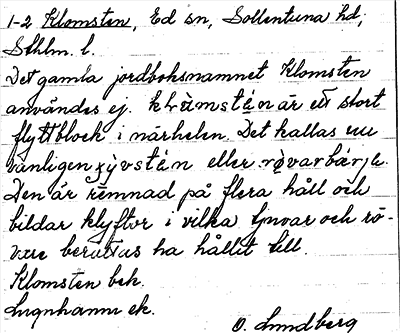 1-2 Klomsten, Ed sn, Sollentuna hd,
Sthlm. l.
Det gamla jordboksnamnet Klomsten
användes ej. klòmstén är ett stort
flyttblock i närheten. Det kallas nu
vanligen eller
Den är remnad på flera håll och
bildar klyftor i vilka tjuvar och rö-
vare berättas ha hållit till.
Klomsten beb.
ek.
O. Lundberg